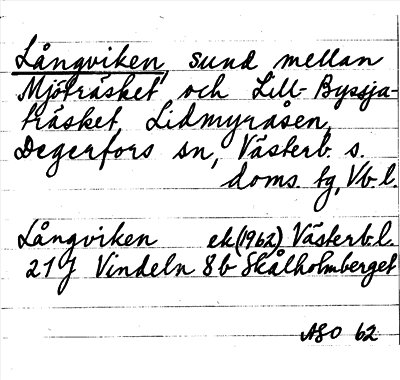 Långviken, sund mellan
Mjöträsket och Lill-Byssja-
träsket, Lidmyråsen,
Degerfors sn, Västerb. s.
doms. tg, Vb.l.
Långviken ek(1962) Västerb.l.
21J Vindeln 8b Skålholmberget
ASO 62